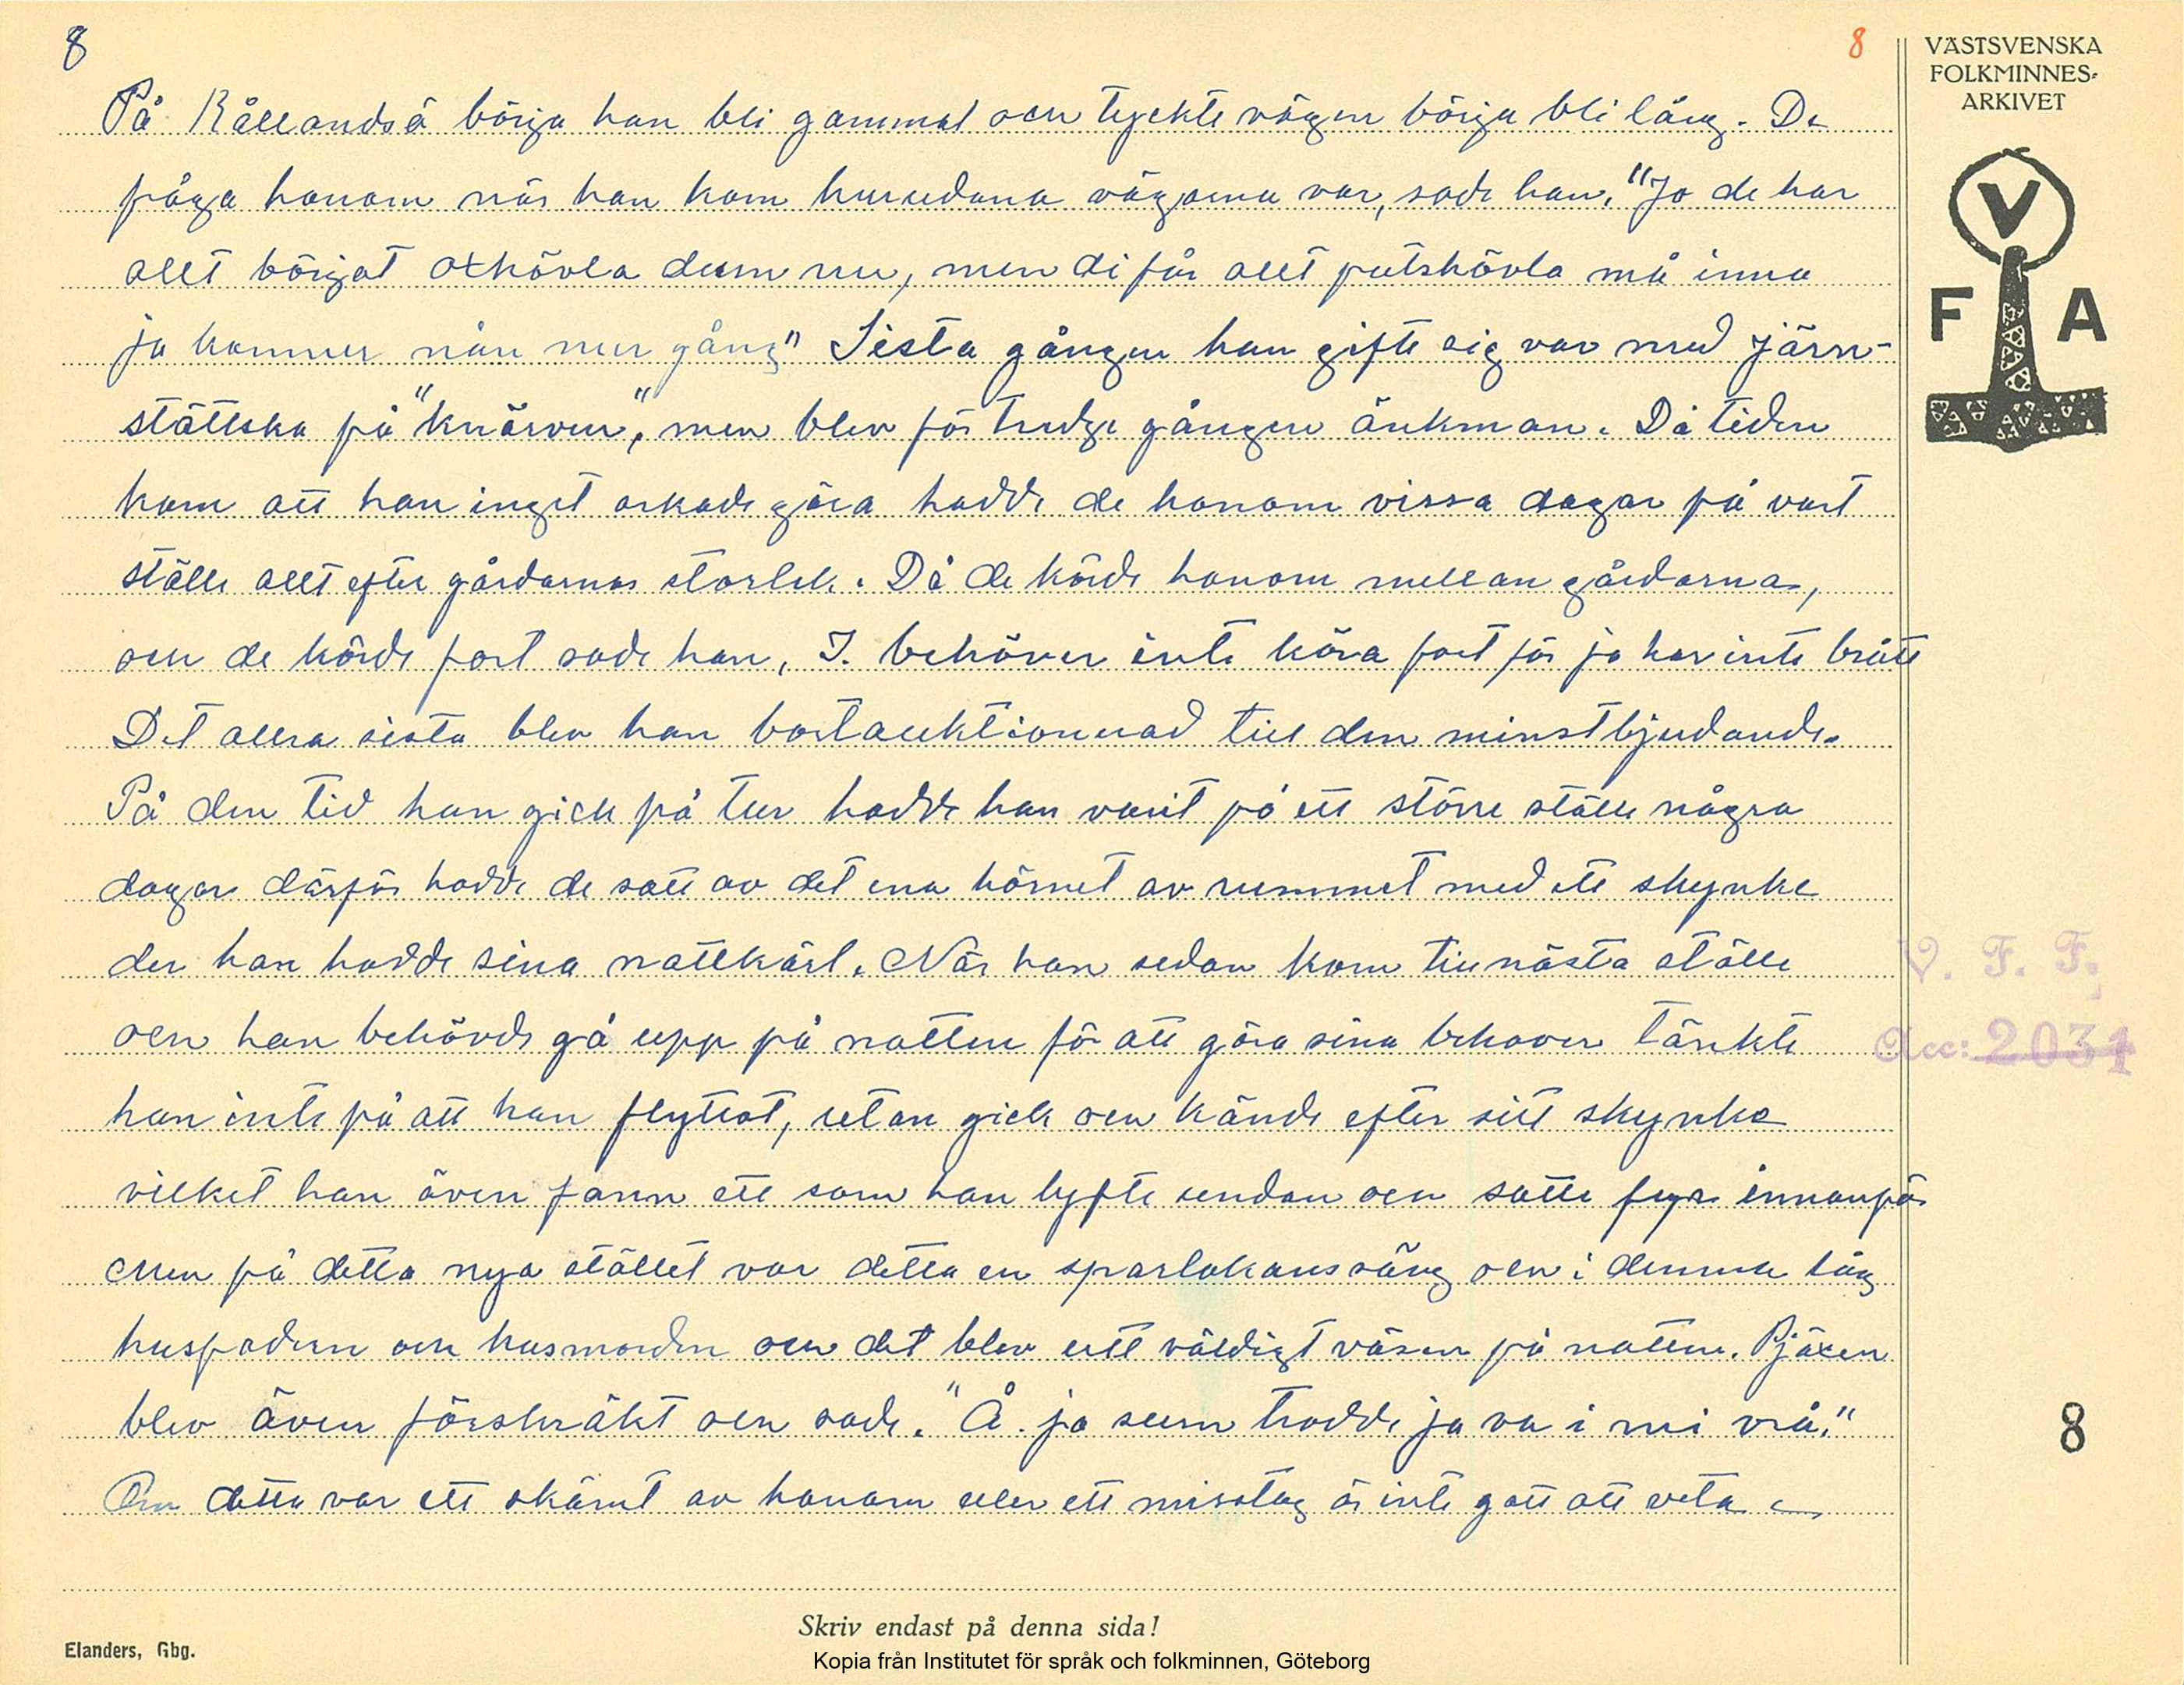 8
8
VÄSTSVENSKA
FOLKMINNES-
ARKIVET
V
F A
På Kållandsö börja han bli gammal och tyckte vägen börja bli lång. De
fråga honom när han kom hurudana vägarna var, sade han, "Jo de har
allt börjat oxhövla dum nu, men di får allt putshövla mä inna
ja kommer nån mer gång" Sista gången han gifte sig var med järn-
stättska på "knärven", men blev för tredje gången änkman. Då tiden
kom att han inget orkade göra hadde de honom vissa dagar på vart
ställe allt efter gårdarnas storlek. Då de körde honom mellan gårdarna,
och de körde fort sade han, I. behöver inte köra fort för ja har inte brått
Det allra sista blev han bortauktionerad till den minstbjudande.
På den tid han gick på tur hadde han varit på ett större ställe några
dagar därför hadde de satt av det ena hörnet av rummet med ett skynke
der han hadde sina nattkärl. När han sedan kom till nästa ställe
och han behövde gå upp på natten för att göra sina behover tänkte
han inte på att han flyttat, utan gick och kände efter sitt skynke
vilket han även fann ett som han lyfte undan och satte fyr innanför
Men på detta nya stället var detta en sparlakanssäng och i denna låg
husfadern och husmodern och det blev ett väldigt väsen på natten. Pjäxen
blev även förskräkt och sade. "Å. ja sum trodde ja va i mi vrå."
Om detta var ett skämt av honom eller ett misstag är inte gott att veta
V. F. F.
Acc: 2031
8
Skriv endast på denna sida!
Elanders, Gbg.
Kopia från Institutet för språk och folkminnen, Göteborg